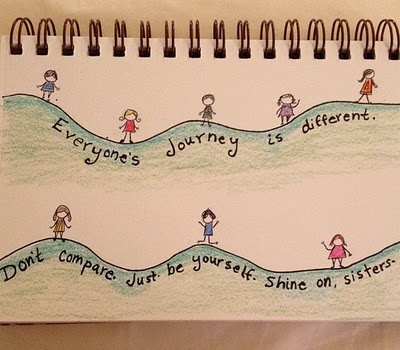 Everyone's Journey is different.
Don't Compare. Just be yourself. Shine on, sisters.